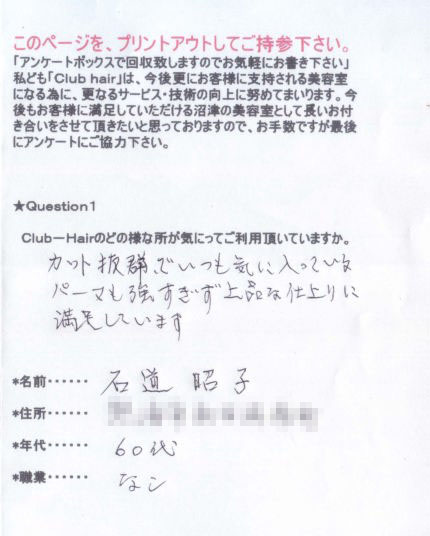 このページを、プリントアウトしてご持参下さい。
「アンケートボックスで回収致しますのでお気軽にお書き下さい」
私ども「Club hair」は、今後更にお客様に支持される美容室
になる為に、更なるサービス・技術の向上に努めてまいります。今
後もお客様に満足していただける沼津の美容室として長いお付
き合いをさせて頂きたいと思っておりますので、お手数ですが最後
にアンケートにご協力下さい。
★Question1
Club－Hairのどの様な所が気にってご利用頂いていますか。
カット抜群、でいつも気に入っていな
パーマも強すぎず上品な仕上りに
満足しています
*名前・・・・・・ 石道 昭子
*住所・・・・・・
*年代・・・・・・ 60代
*職業・・・・・・ なし